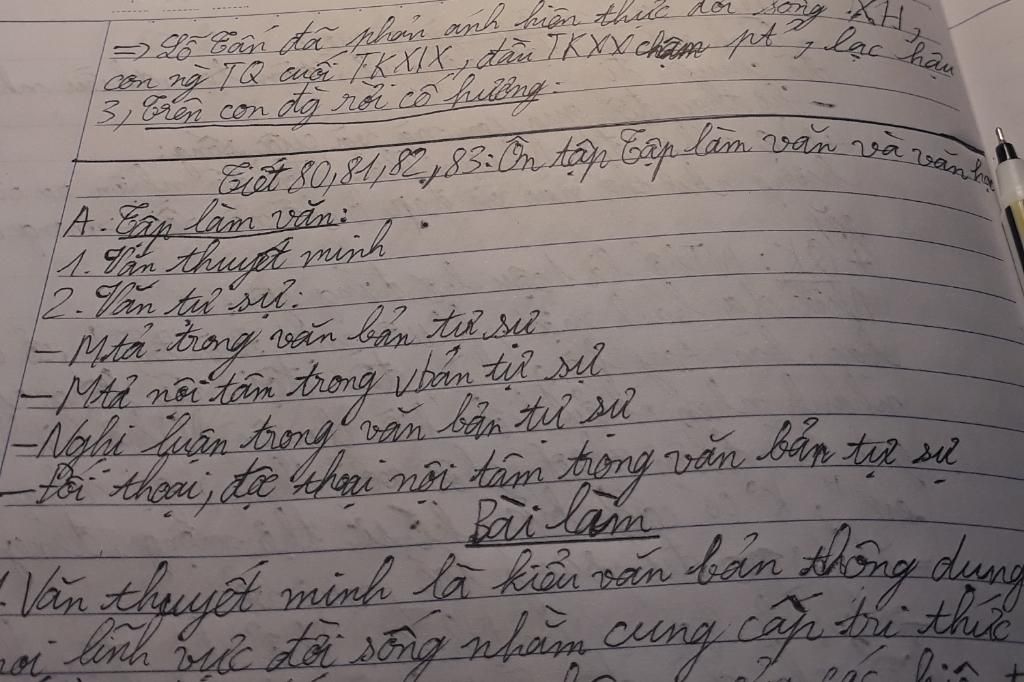 => Lỗ Tấn đã phản ánh hiện thực đời sống XH,
con ng TQ cuối TKXIX, đầu TKXX chậm pt, lạc hậu
3, Trên con đg rời cố hương.
Tiết 80,81,82,83: Ôn tập Tập làm văn và văn học
A. Tập làm văn:
1. Văn thuyết minh
2. Văn tự sự.
- Mtả trong văn bản tự sự
- Mtả nội tâm trong vbản tự sự
- Nghị luận trong văn bản tự sự
- Đối thoại, độc thoại nội tâm trong văn bản tự sự
Bài làm
1. Văn thuyết minh là kiểu văn bản thông dụng
lĩnh vực đời sống nhằm cung cấp tri thức